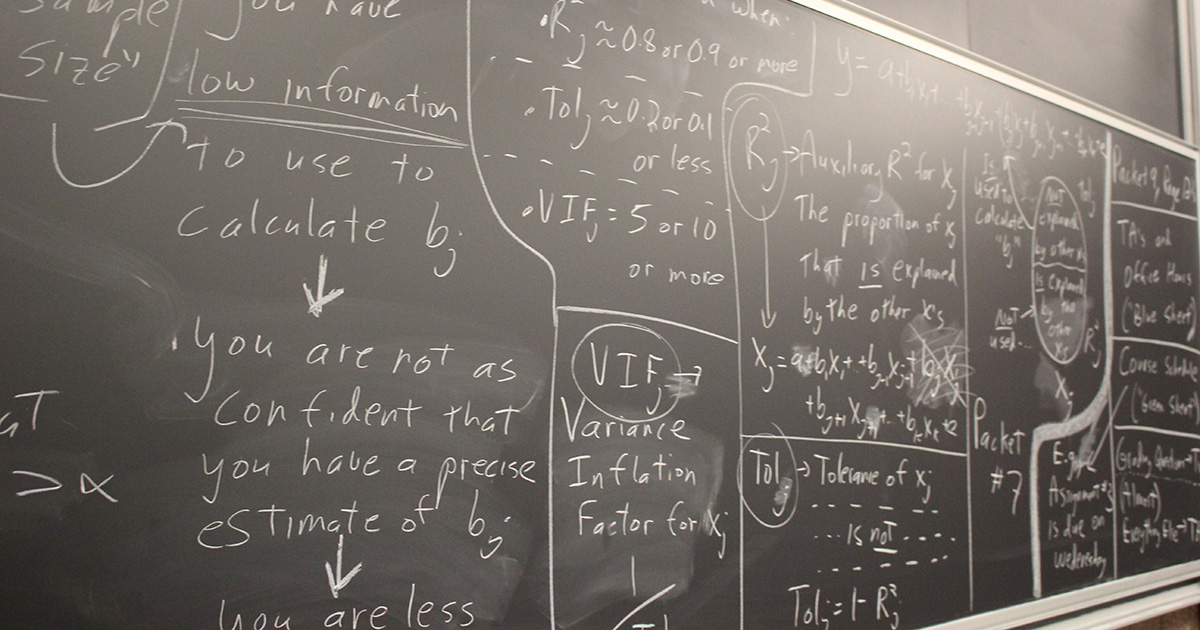 Sample
Size"
you have
low information
to use to
Calculate bj
you are not as
confident that
you have a precise
estimate of bj
you are less
> α
when:
• R²j ≈ 0.8 or 0.9 or more
• Tolj ≈ 0.2 or 0.1
or less
• VIFj = 5 or 10
or more
VIFj →
Variance
Inflation
Factor for xj
R²j → Auxiliary R² for xj
The proportion of xj
that is explained
by the other x's
Xj = a+b1x1+...+bj-1xj-1+
+bj+1xj+1+...+bkxk+e
Tolj → Tolerance of xj
... is not ...
Tolj = 1 - R²j
Is
used to
calculate
"bj"
Not
explained
by other
Tolj
Is explained
by the
other
R²j
Not
used...
Xj
Packet
#7
Assignment
is due on
Wednesday
Packet 9, Page
TA's and
Office Hours
("Blue Sheet")
Course Schedule
("Green Sheet")
Grading Question
(Almost)
Everything Else